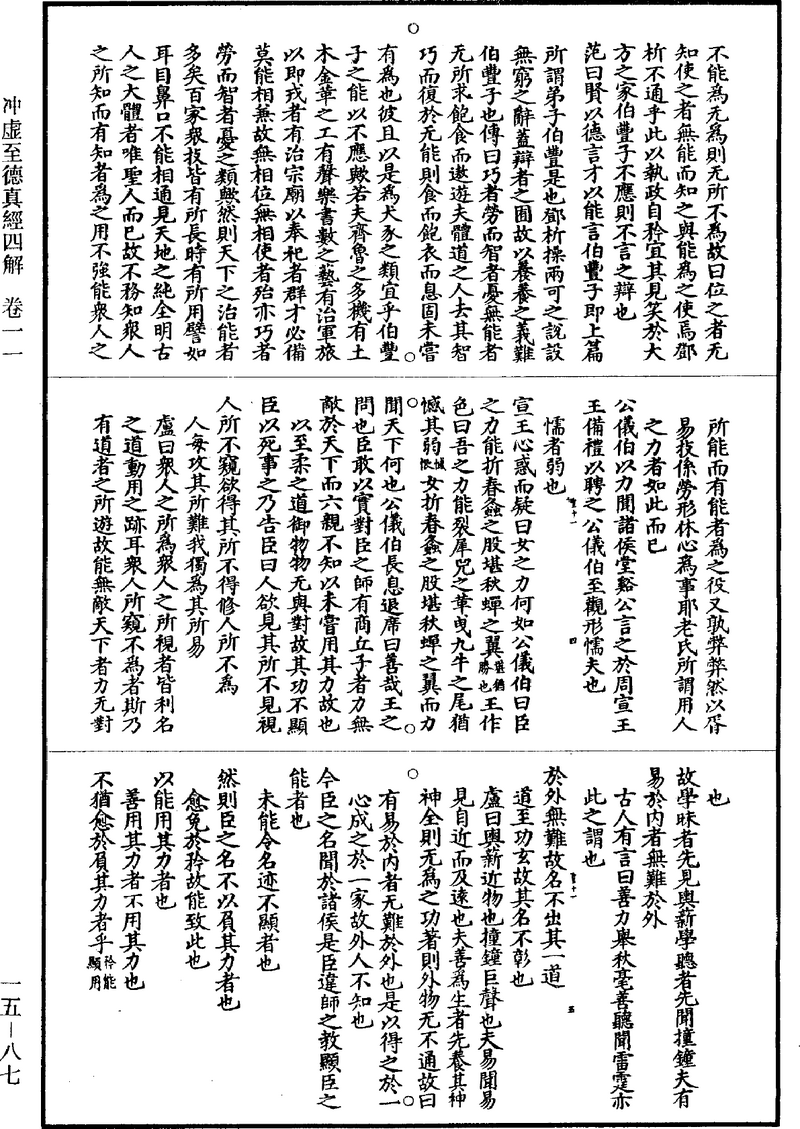 不能為无為則无所不為故曰位之者无
知使之者無能而知之與能為之使焉鄧
析不通乎此以執政自矜宜其見笑於大
方之家伯豐子不應則不言之辯也
范曰賢以德言才以能言伯豐子即上篇
所謂弟子伯豐是也鄧析操兩可之說設
無窮之辭蓋辯者之囿故以養養之義難
伯豐子也傳曰巧者勞而智者憂無能者
无所求飽食而遨遊夫體道之人去其智
巧而復於无能則食而飽衣而息固未嘗
有為也彼且以是為犬豕之類宜乎伯豐
子之能以不應歟若夫齊魯之多機有土
木金華之工有聲樂書數之藝有治軍旅
以即戎者有治宗廟以奉祀者群才必備
莫能相兼故無相位無相使者殆亦巧者
勞而智者憂之類歟然則天下之治能者
多矣百家衆技皆有所長時有所用譬如
耳目鼻口不能相通見天地之純全明古
人之大體者唯聖人而已故不務知衆人
之所知而有知者為之用不強能衆人之
所能而有能者為之役又孰弊弊然以胥
易技係勞形怵心為事耶老氏所謂用人
之力者如此而已
公儀伯以力聞諸侯堂谿公言之於周宣王
王備禮以聘之公儀伯至觀形懦夫也
懦者弱也
宣王心惑而疑曰女之力何如公儀伯曰臣
之力能折春螽之股堪秋蟬之翼堪猶勝也王作
色曰吾之力能裂犀兕之革曳九牛之尾猶
憾其弱憾恨女折春螽之股堪秋蟬之翼而力
聞天下何也公儀伯長息退席曰善哉王之
問也臣敢以實對臣之師有商丘子者力無
敵於天下而六親不知以未嘗用其力故也
以至柔之道御物物无與對故其功不顯
臣以死事之乃告臣曰人欲見其所不見視
人所不窺欲得其所不得修人所不為
人每攻其所難我獨為其所易
盧曰衆人之所為衆人之所視者皆利名
之道動用之跡耳衆人所窺不為者斯乃
有道者之所遊故能無敵天下者力无對
也
故學眎者先見輿薪學聽者先聞撞鐘夫有
易於內者無難於外
古人有言曰善力舉秋毫善聽聞雷霆亦
此之謂也
於外無難故名不出其一道
道至功玄故其名不彰也
盧曰輿薪近物也撞鐘巨聲也夫易聞易
見自近而及遠也夫善為生者先養其神
神全則无為之功著則外物无不通故曰
有易於內者无難於外也是以得之於一
心成之於一家故外人不知也
今臣之名聞於諸侯是臣違師之教顯臣之
能者也
未能令名迹不顯者也
然則臣之名不以負其力者也
愈免於矜故能致此也
以能用其力者也
善用其力者不用其力也
不猶愈於負其力者乎矜能顯用
冲虛至德真經四解 卷一一
一五—八七